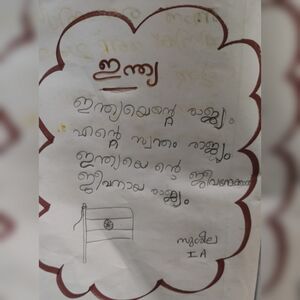 ഇന്ത്യ
ഇന്ത്യയെന്റെ രാജ്യം
എന്റെ സ്വന്തം രാജ്യം
ഇന്ത്യയെ ന്റെ ജീവനേക്കാൾ
ജീവനായ രാജ്യം
സുശീല
I A